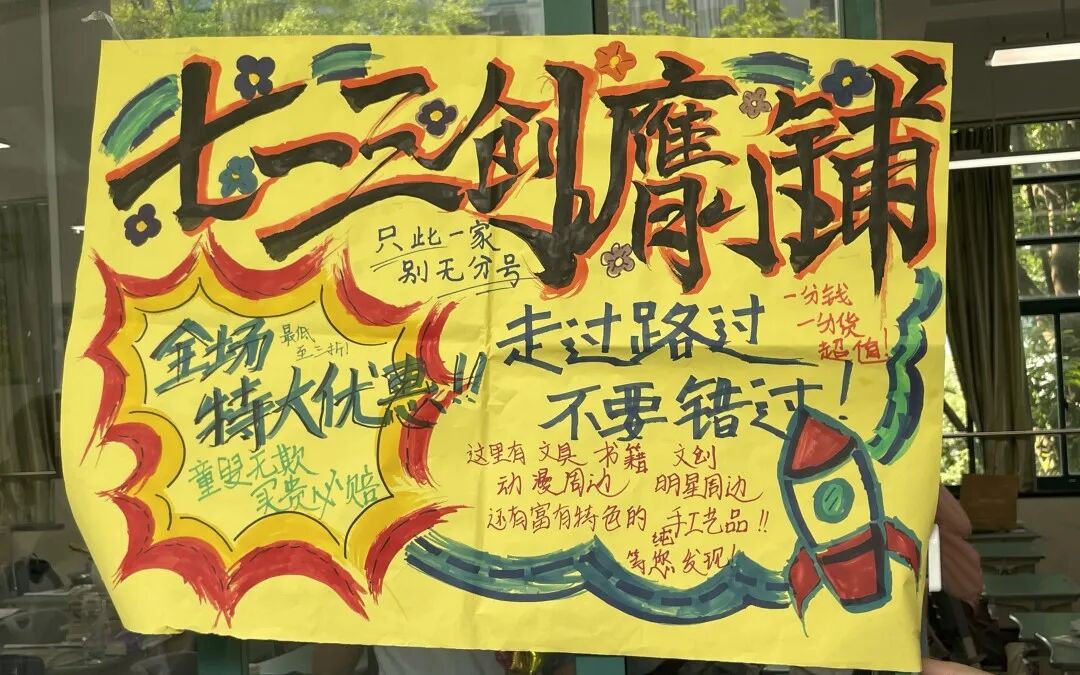 七二之创膺小铺
只此一家
别无分号
全场
最低
至三折!
特大优惠!!
童叟无欺
买贵必赔
走过路过
不要错过!
一分钱
一分货
超值!
这里有 文具 书籍 文创
动漫周边 明星周边
还有富有特色的纯手工艺品!!
等您发现!